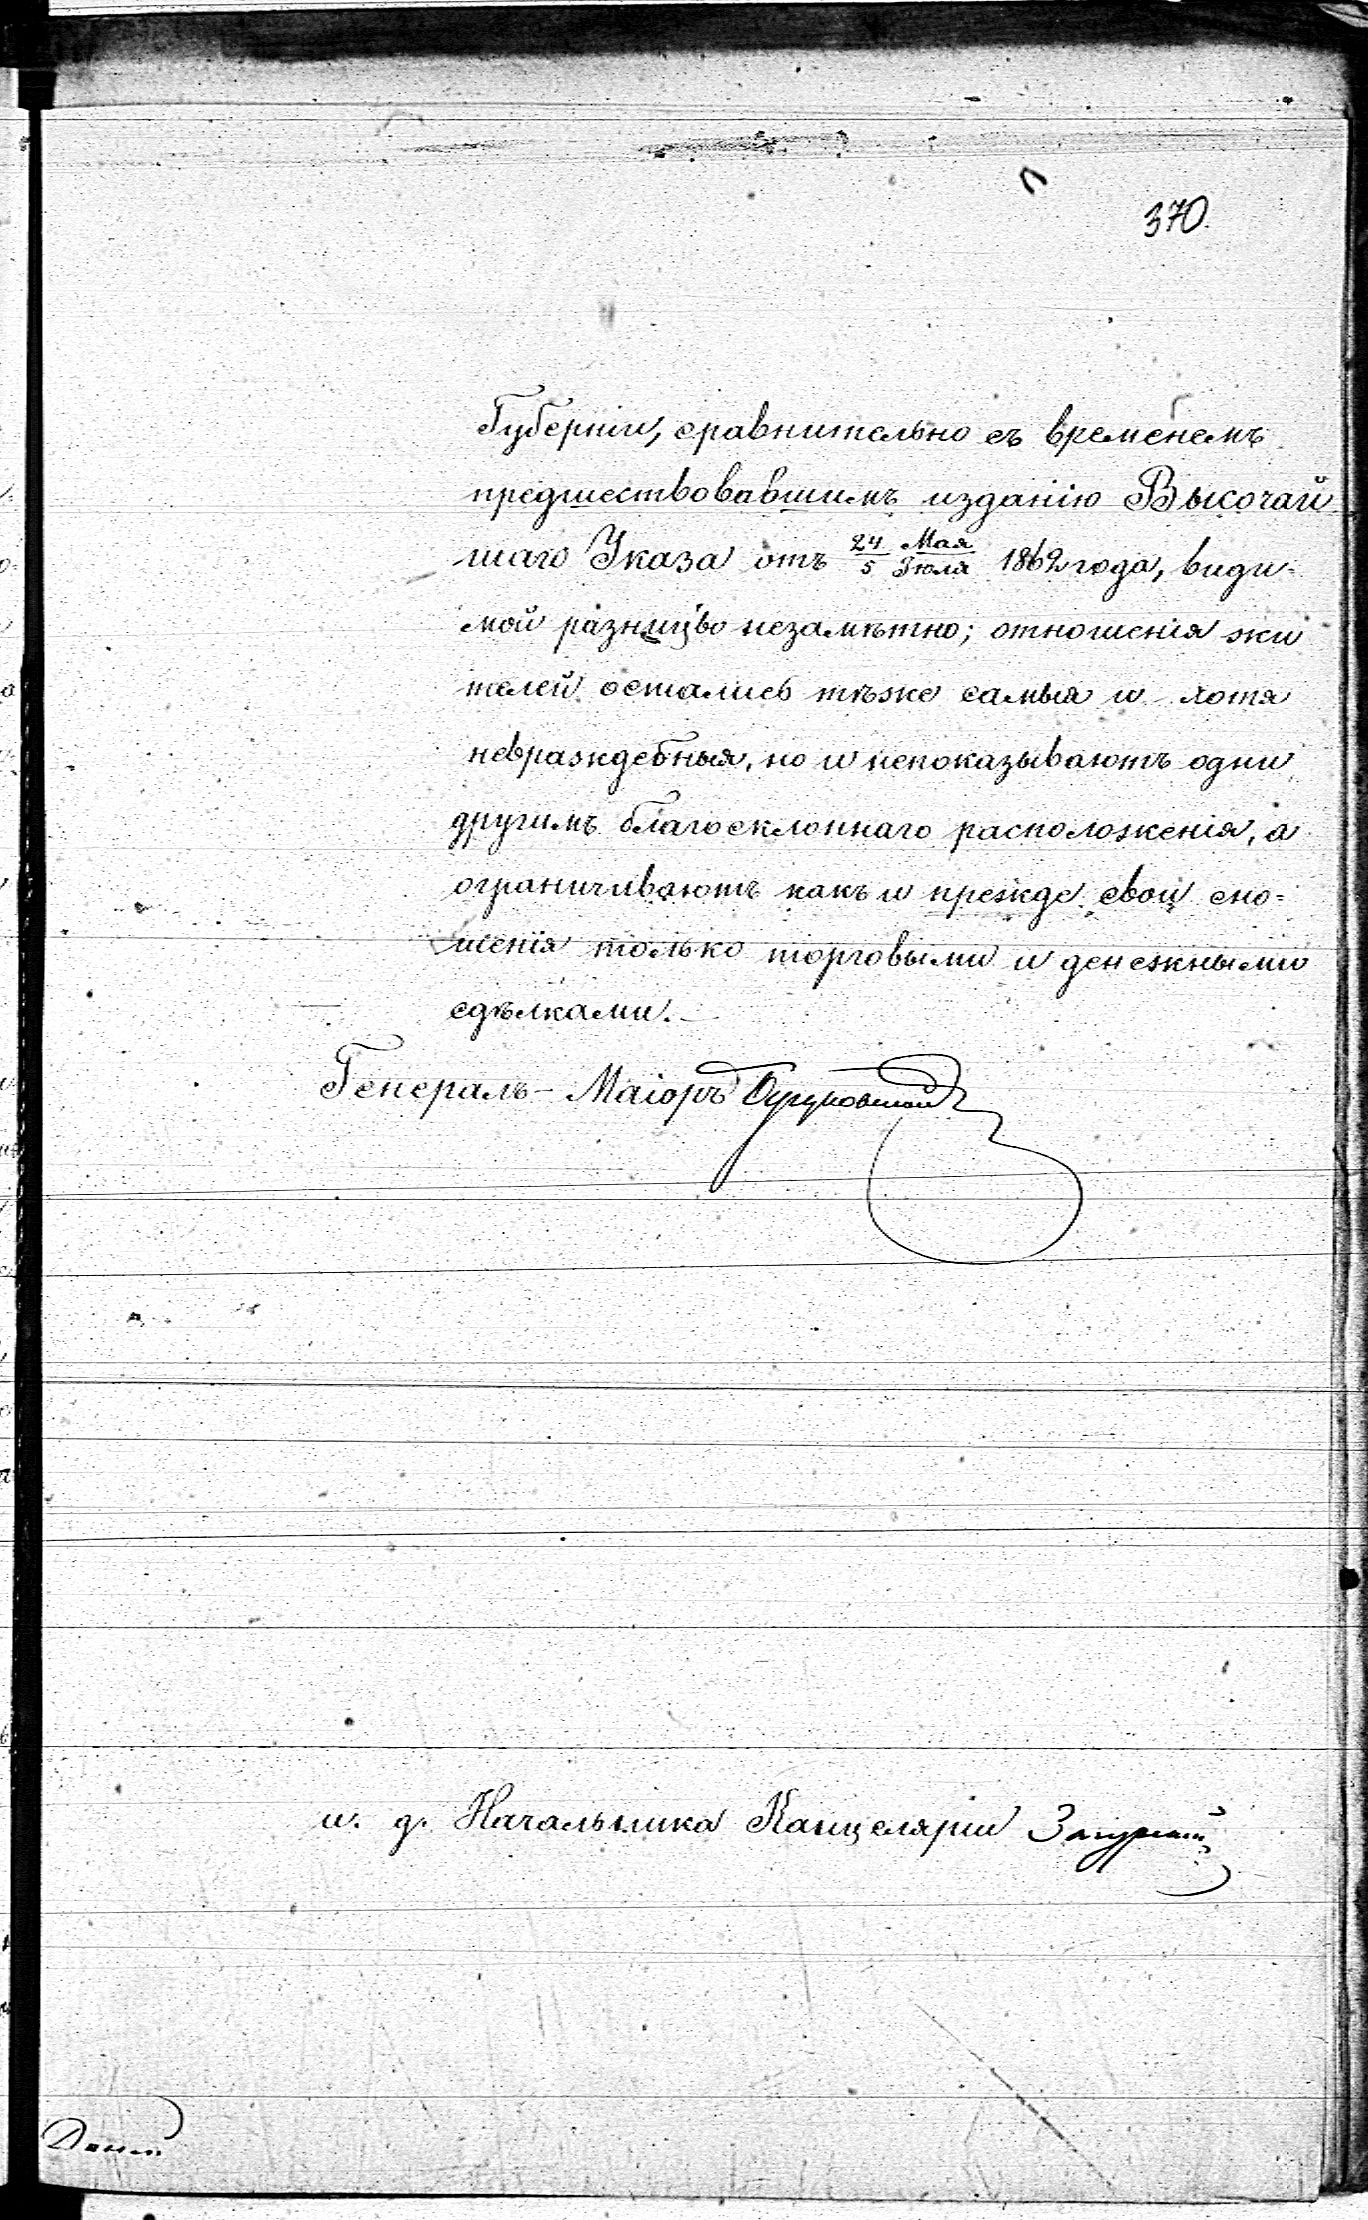 370.
Губерніи, сравнительно съ временемъ
предшествовавшимъ изданію Высочай
шаго Указа отъ 24/5 Мая/Іюля 1862 года, види-
мой разницы незамѣтно; отношенія жи
телей остались тѣже самыя и хотя
невраждебныя, но и непоказываютъ одни
другимъ благосклоннаго расположенія, а
ограничиваютъ какъ и прежде свои сно=
шенія только торговыми и денежными
сдѣлками.
Генералъ-Маіоръ
и. д. Начальника Канцеляріи